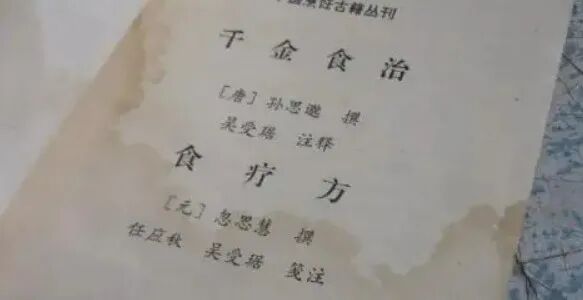 烹饪古籍丛刊
千金食治
［唐］孙思邈 撰
吴受琚 注释
食疗方
［元］忽思慧 撰
任应秋 吴受琚 笺注